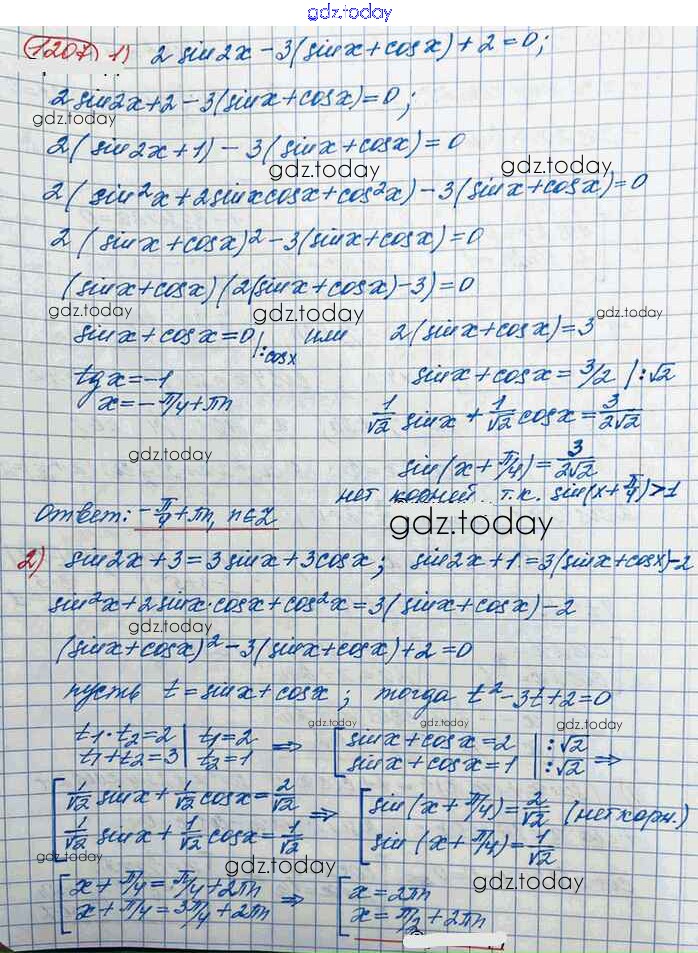 gdz.today
1207 1) 2 sin2x - 3(sinx + cosx) + 2 = 0;
2 sin2x + 2 - 3(sinx + cosx) = 0;
gdz.today
2(sin2x + 1) - 3(sinx + cosx) = 0
gdz.today gdz.today
2(sin²x + 2sinxcosx + cos²x) - 3(sinx + cosx) = 0
2(sinx + cosx)² - 3(sinx + cosx) = 0
(sinx + cosx)(2(sinx + cosx) - 3) = 0
gdz.today gdz.today gdz.today
sinx + cosx = 0 |:cosx или 2(sinx + cosx) = 3
tgx = -1 sinx + cosx = 3/2 |:√2
x = -π/4 + πn 1/√2 sinx + 1/√2 cosx = 3/2√2
gdz.today sin(x + π/4) = 3/2√2
нет корней т.к. sin(x + π/4) > 1
Ответ: -π/4 + πn, n∈Z
gdz.today
2) sin2x + 3 = 3sinx + 3cosx; sin2x + 1 = 3(sinx + cosx) - 2
sin²x + 2sinx·cosx + cos²x = 3(sinx + cosx) - 2
gdz.today
(sinx + cosx)² - 3(sinx + cosx) + 2 = 0
пусть t = sinx + cosx; тогда t² - 3t + 2 = 0
gdz.today gdz.today
t₁·t₂ = 2 | t₁ = 2 ⇒ [ sinx + cosx = 2 |:√2
t₁ + t₂ = 3 | t₂ = 1 sinx + cosx = 1 |:√2 ⇒
[ 1/√2 sinx + 1/√2 cosx = 2/√2 ⇒ [ sin(x + π/4) = 2/√2 (нет корн.)
1/√2 sinx + 1/√2 cosx = 1/√2 sin(x + π/4) = 1/√2
gdz.today gdz.today
[ x + π/4 = π/4 + 2πn ⇒ [ x = 2πn
gdz.today
x + π/4 = 3π/4 + 2πn x = π/2 + 2πn